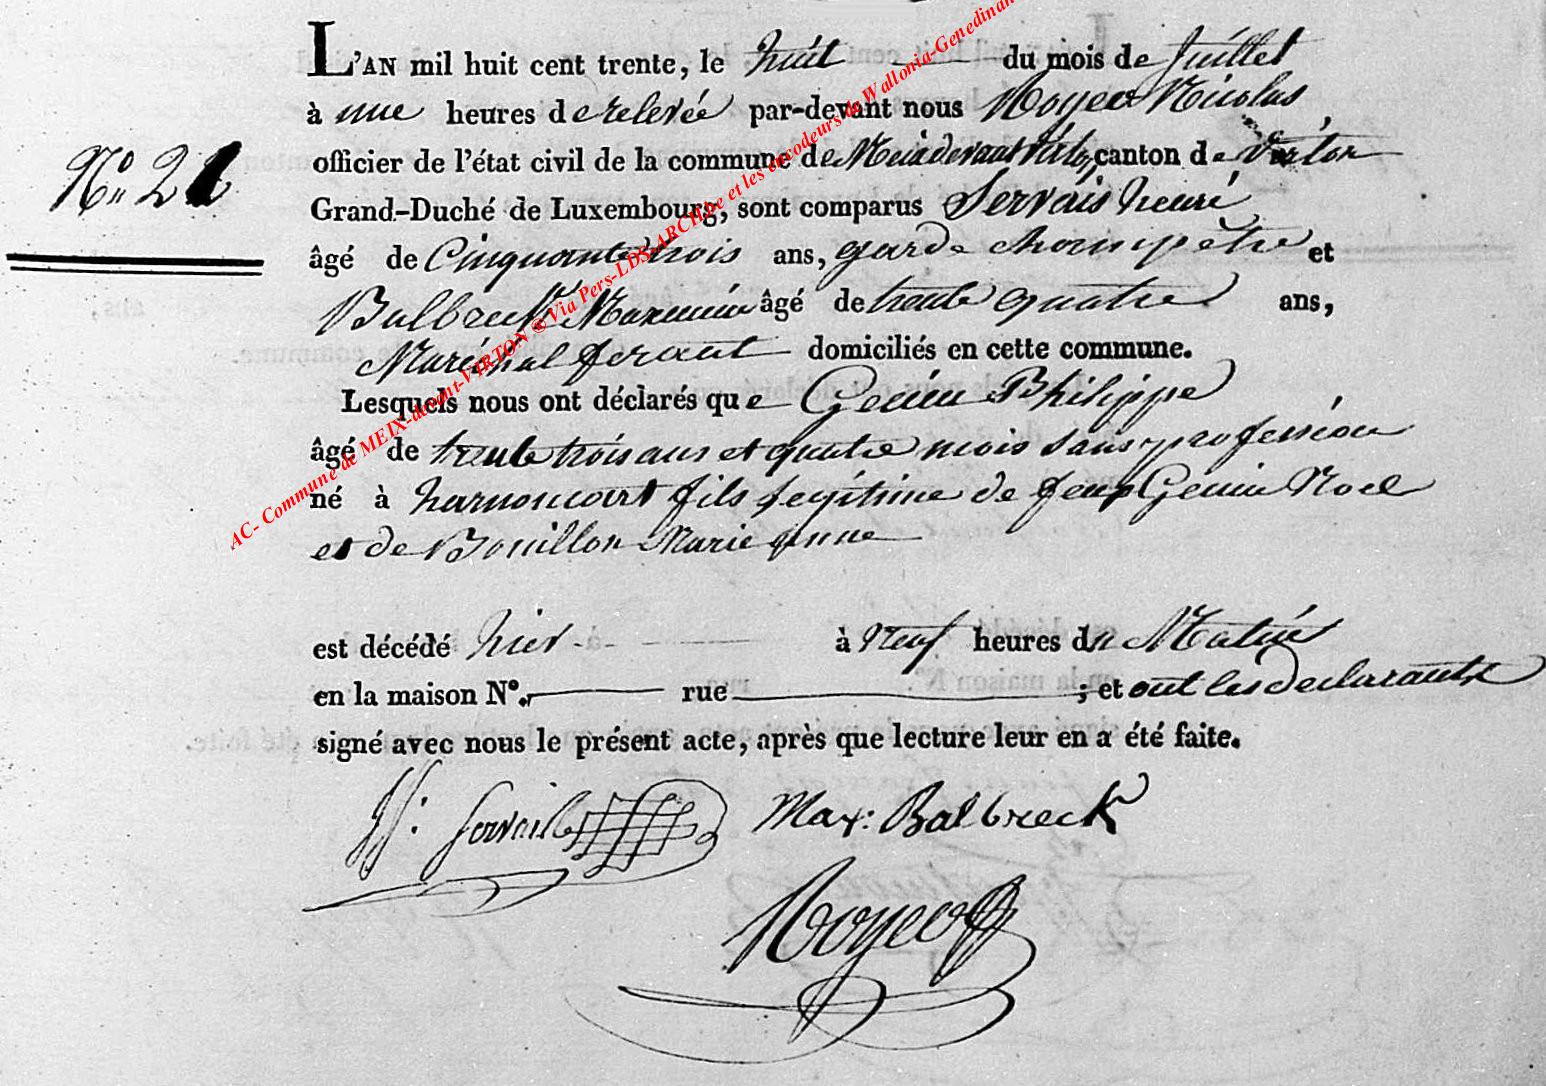 L'AN mil huit cent trente, le huit du mois de Juillet
à une heures de relevée par-devant nous Noyer Nicolas
officier de l'état civil de la commune de Meixdevant Virton, canton de Virton
Nº 21
Grand-Duché de Luxembourg, sont comparus Servais henri
âgé de Cinquante trois ans, garde champêtre et
Balbreck Maximin âgé de trente quatre ans,
Maréchal ferant domiciliés en cette commune.
Lesquels nous ont déclarés que Genin Philippe
âgé de trente trois ans et quatre mois sans profession
né à harnoncourt fils legitime de feux Genin Noel
et de Bouillon Marie anne
est décédé hier à neuf heures du Matin
en la maison Nº. rue ; et ont les declarants
signé avec nous le présent acte, après que lecture leur en a été faite.
H. Servais Max: Balbreck
Noyer
AC- Commune de MEIX-devant-VIRTON ® Via Pers-LDS-ARCH.be et les encodeurs de Wallonia-Genedinan